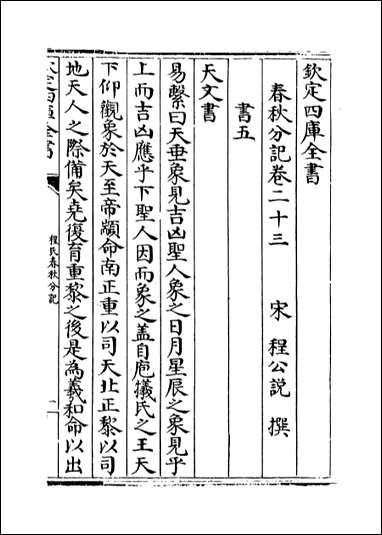 欽定四庫全書
春秋分記卷二十三
宋 程公説 撰
書五
天文書
易繫曰天垂象見吉凶聖人象之日月星辰之象見乎
上而吉凶應乎下聖人因而象之蓋自庖犧氏之王天
下仰觀象於天至帝顓命南正重以司天北正黎以司
地天人之際備矣堯復育重黎之後是為羲和命以出
程氏春秋分記
一